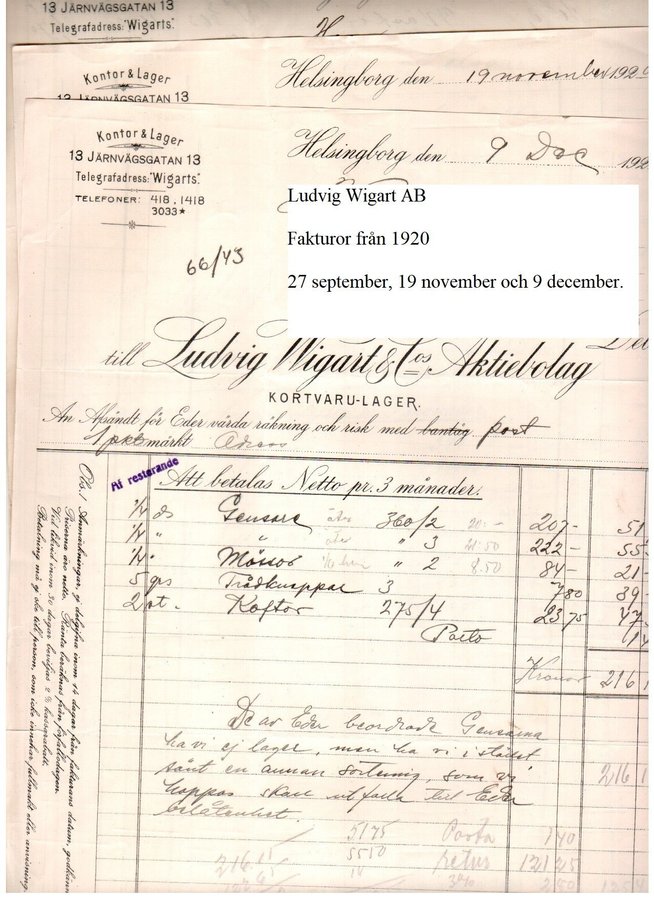 13 JÄRNVÄGSGATAN 13
Telegrafadress: "Wigarts".
Kontor & Lager
13 JÄRNVÄGSGATAN 13
Helsingborg den 19 november 192
Kontor & Lager
13 JÄRNVÄGSGATAN 13
Telegrafadress: "Wigarts".
TELEFONER: 418, 1418
3033*
Helsingborg den 9 Dec 192
66/43
Ludvig Wigart AB
Fakturor från 1920
27 september, 19 november och 9 december.
till Ludvig Wigart & Cos Aktiebolag
KORTVARU-LAGER.
An Afsändt för Eder värda räkning och risk med bantåg post
1 pkt märkt
Af restarande
Att betalas Netto pr. 3 månader.
1/4 ds Gensare åter 360/2 20:- 207- 51
1/4 " " åter " 3 21.50 222- 55-
1/4 " Mössor " 2 8.50 84- 21
5 grs Trådknappar 3 780 39-
2 st. Koftor 275/4 23 75 47
Porto 1
Kronor 216 1
De av Eder beordrade Gensarna
ha vi ej lager, men ha vi i stället
sänt en annan sortering, som vi
hoppas skall utfalla till Eder
belåtenhet.
216 1
5175 Porto 140
5550 retur 121 25
Obs.! Anmärkningar ej delgifna inom 14 dagar från fakturans datum, godkän
Priserna äro netto. Ränta beräknas från förfallodagen.
Vid likvid inom 30 dagar beviljas 2 % kassarabatt.
Betalning må ej ske till person, som icke innehar fullmakt eller anvisning